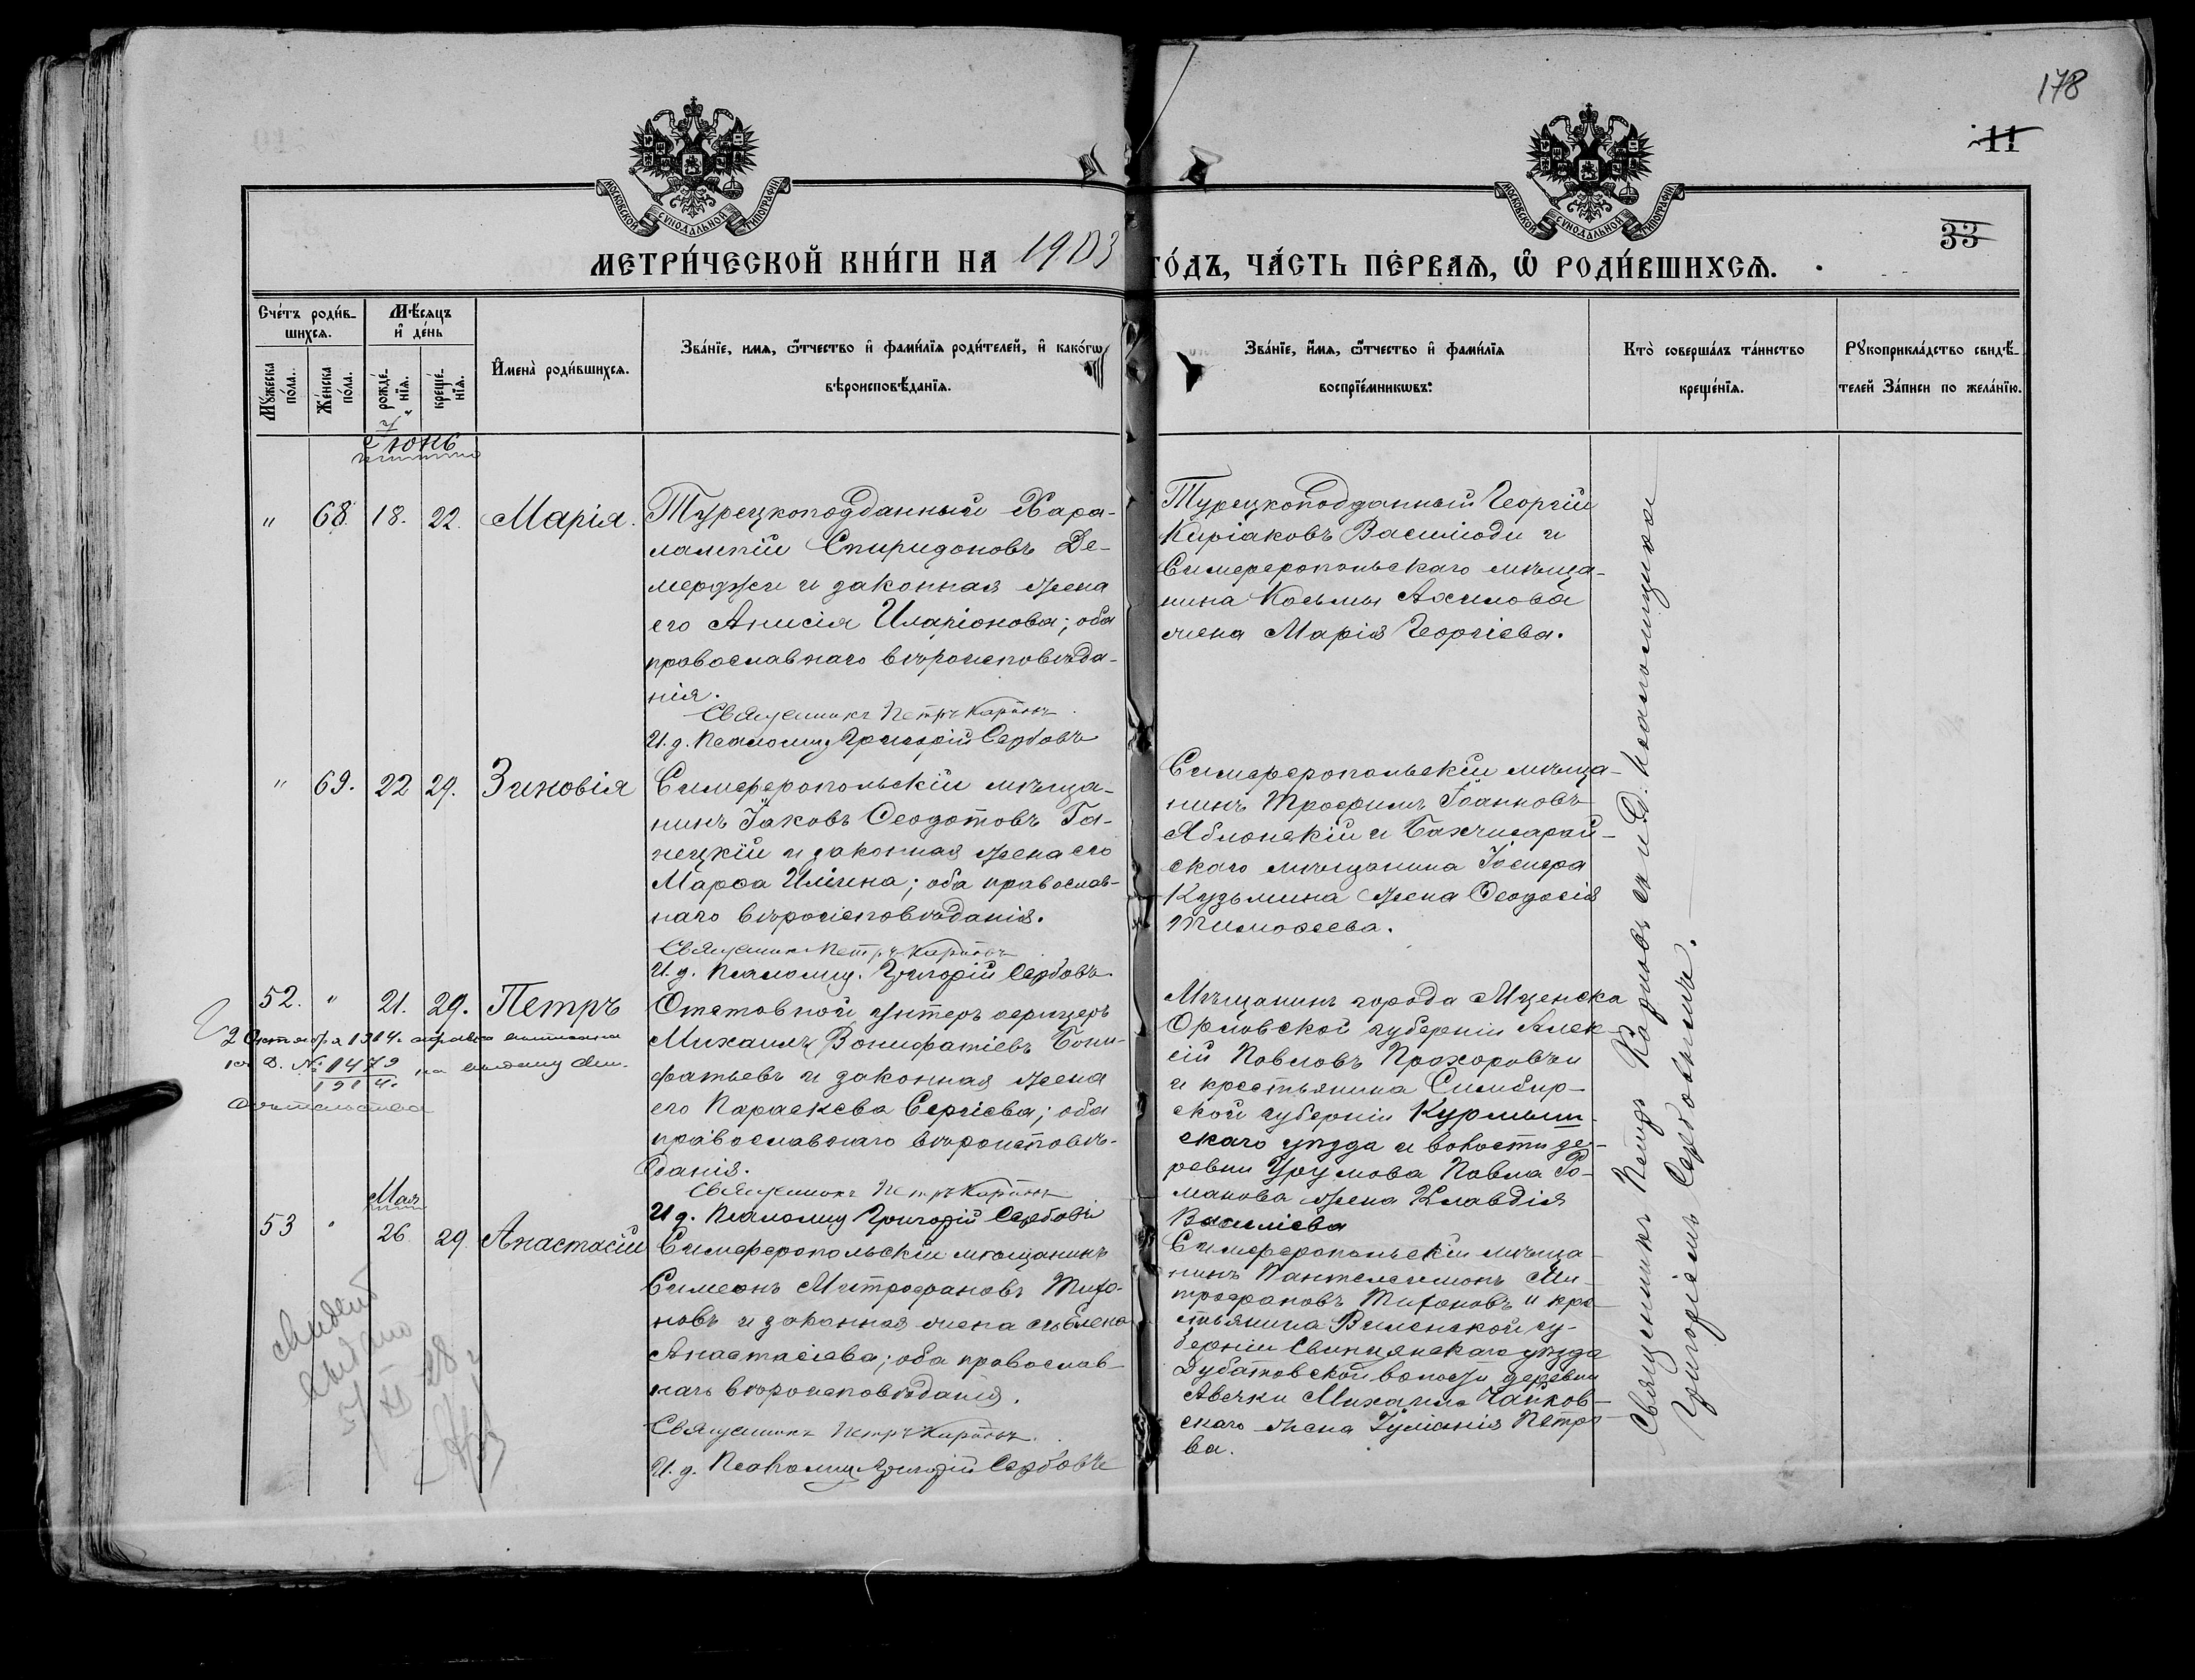 178
11
33
МОСКОВСКОЙ СѴНОДАЛЬНОЙ ТИПОГРАФІИ
МОСКОВСКОЙ СѴНОДАЛЬНОЙ ТИПОГРАФІИ
МЕТРИ́ЧЕСКОЙ КНИ́ГИ НА 1903 ГО́ДЪ, ЧА́СТЬ ПЕ́РВАЯ, Ѿ РОДИ́ВШИХСЯ.
Сче́тъ роди́в-
шихся.
Мѣ́сяцъ
и҆ де́нь
Мꙋ́жеска
по́ла.
Же́нска
по́ла.
рожде́-
нїя.
креще́-
нїя.
И҆мена̀ роди́вшихся.
Зва́нїе, имя, ѻ҆́тчество и҆ фами́лїя роди́телей, и҆ како́гѡ
вѣроисповѣ́данїя.
Зва́нїе, и҆́мя, ѻ҆́тчество и҆ фами́лїя
воспрїе́мникѡвъ.
Кто̀ соверша́лъ та́инство
креще́нїя.
Рꙋкоприкла́дство свидѣ́-
телей За́писи по жела́нїю.
Іюнь
" 68. 18. 22. Марія.
Турецкоподданный Хара-
лампій Спиридоновъ Де-
мерджи и законная жена
его Анисія Иларіонова; оба
православнаго вѣроисповѣда-
нія.
Священникъ Петръ Карповъ
И. д. Псаломщ. Григорій Сербовъ
Турецкоподданный Георгій
Киріаковъ Василіоди и
Симферопольскаго мѣща-
нина Косьмы Ахилова
жена Марія Георгіева.
" 69. 22 29. Зиновія
Симферопольскій мѣща-
нинъ Іаковъ Ѳеодотовъ Га-
нецкій и законная жена его
Марѳа Илiина; оба православ-
наго вѣроисповѣданія.
Священникъ Петръ Карповъ
И. д. Псаломщ. Григорій Сербовъ.
Симферопольскій мѣща-
нинъ Трофимъ Іоанновъ
Яблонскій и Бахчисарай-
скаго мѣщанина Іосифа
Кузьмина жена Ѳеодосія
Тимоѳеева.
52. " 21. 29. Петръ
2 Октября 1914 г.
№ 1479
1914.
Отставной унтеръ офицеръ
Михаилъ Вонифатіевъ Бони-
фатьевъ и законная жена
его Параскева Сергіева; оба
православнаго вѣроисповѣ-
данія.
Священникъ Петръ Карповъ
И д. Псаломщ Григорій Сербовъ
Мѣщанинъ города Мценска
Орловской губерніи Алек-
сій Павловъ Прохоровъ и
и крестьянина Симбир-
ской губерніи Курмыш-
скаго уѣзда и волости де-
ревни Урумова Павла Ро-
манова жена Клавдія
Василіева
Мая
53 " 26. 29. Анастасій
Симферопольскій мѣщанинъ
Симеонъ Митрофановъ Тихо-
новъ и законная жена его Елена
Анастасіева; оба православ-
наго вѣроисповѣданія.
Священникъ Петръ Карповъ.
И. д. Псаломщ Григорій Сербовъ
Симферопольскій мѣща-
нинъ Пантелеимонъ Ми-
трофановъ Тихоновъ и кре-
стьянина Виленской гу-
берніи Свенцянскаго уѣзда
Дубатовской волости деревни
Авечки Михаила Чайков-
скаго жена Іуліанія Петро-
ва.
выдано
Священникъ Петръ Карповъ съ и. д. псаломщика
Григоріемъ Сербовымъ.